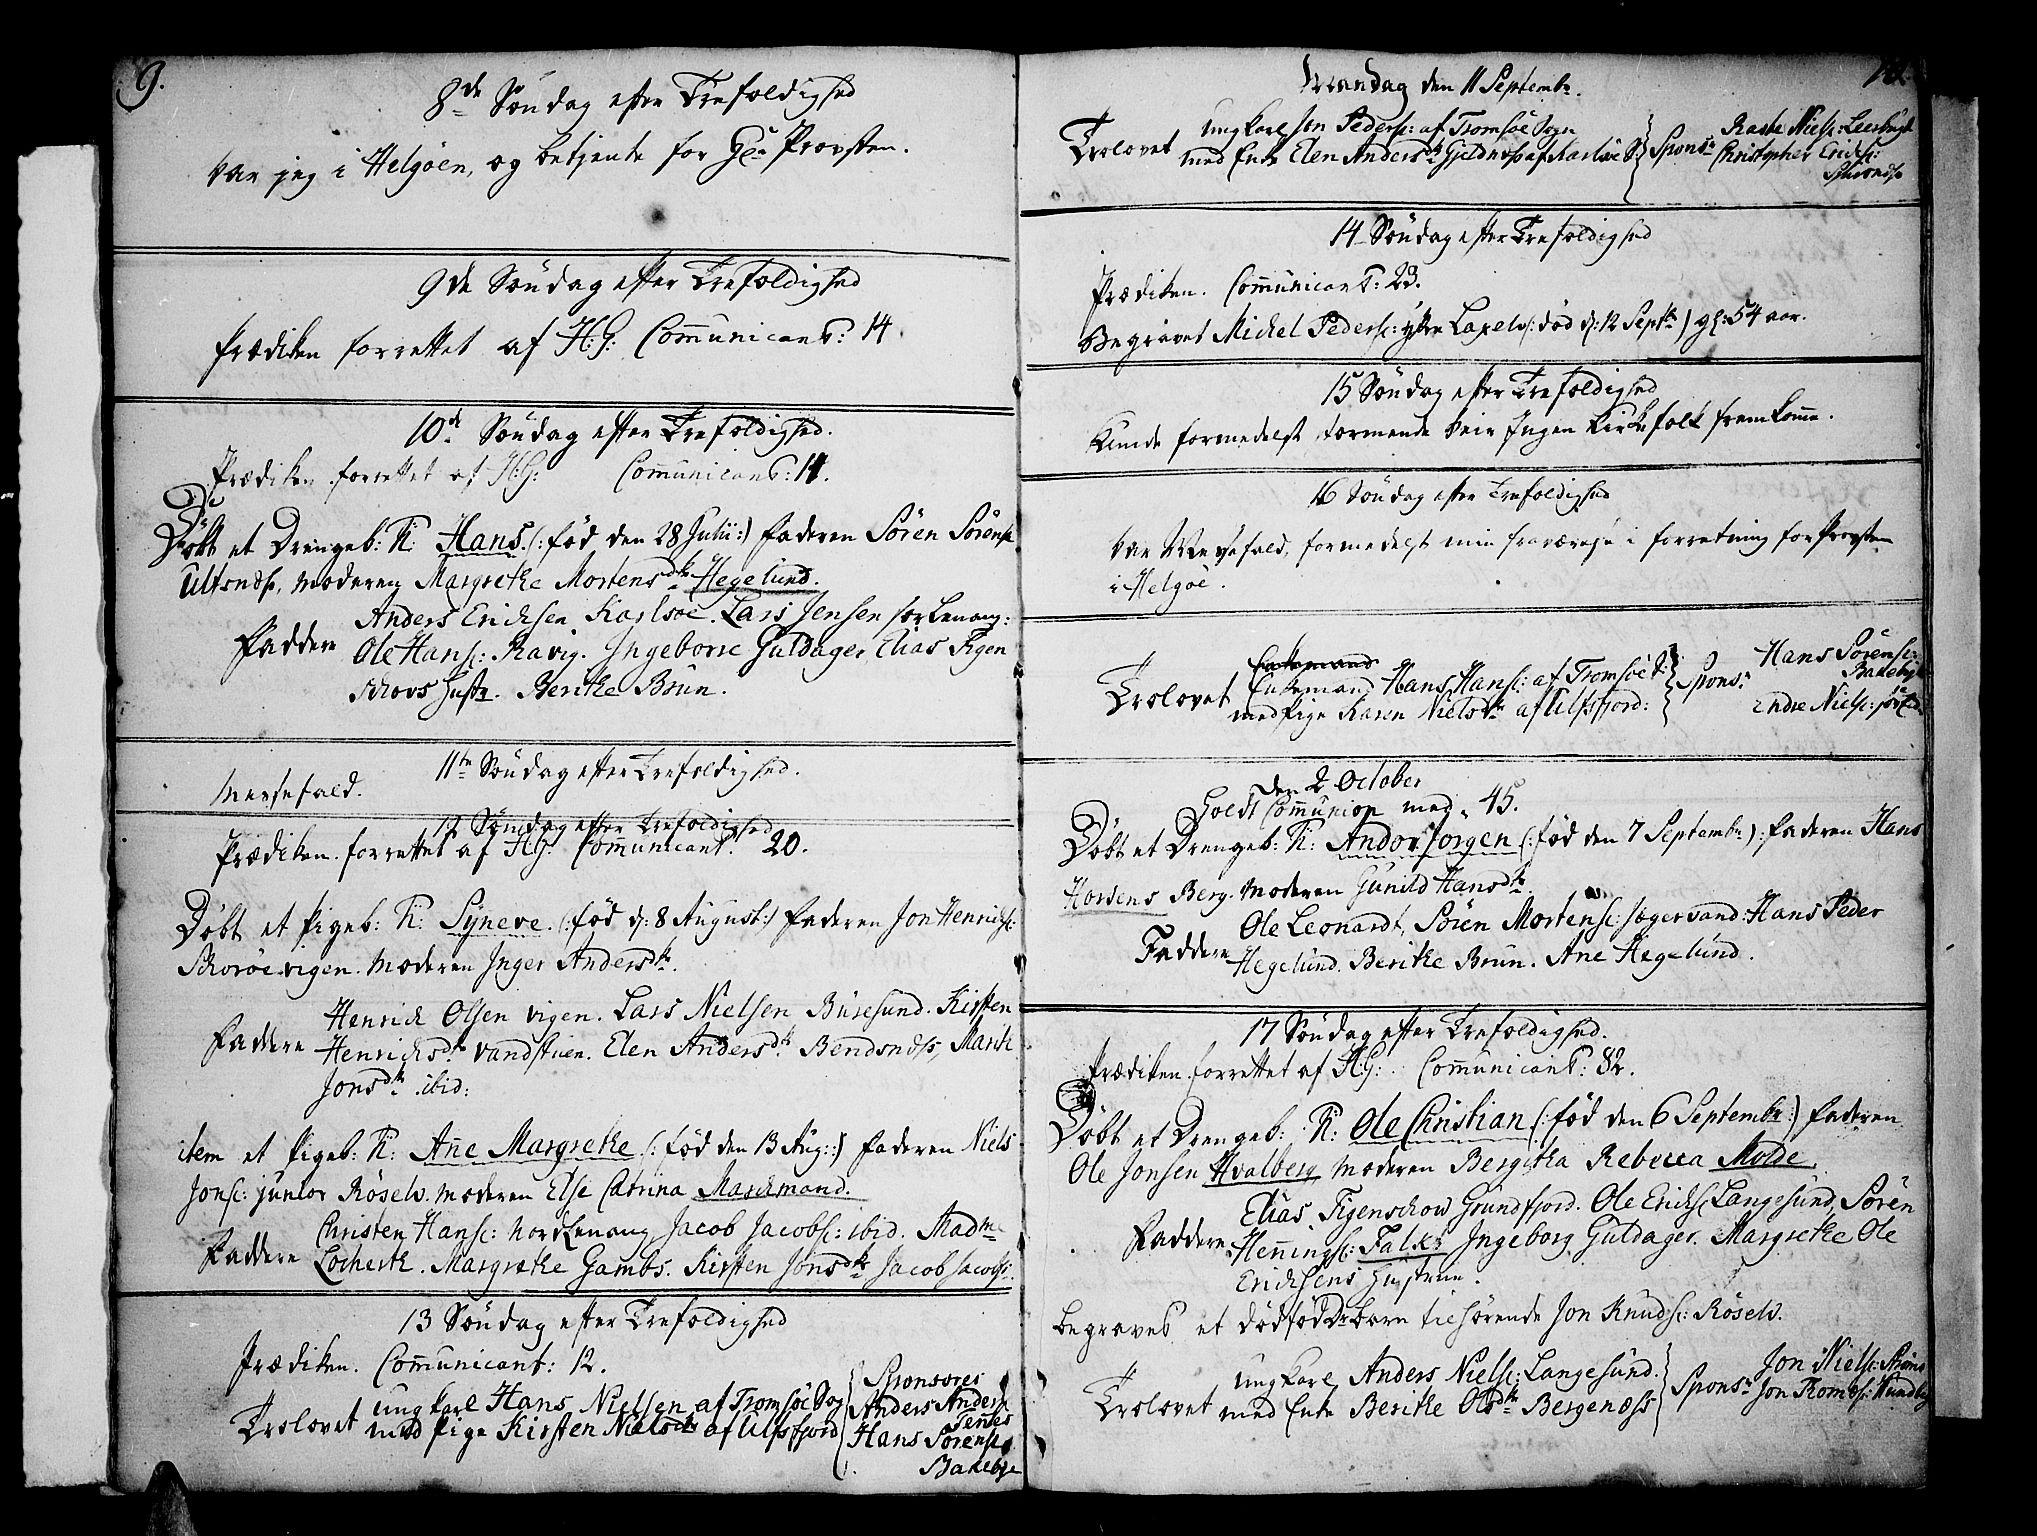 9.
8de Søndag efter Trefoldighed
var jeg i Helgöen, og betjente for Hr Provsten.
9de Søndag efter Trefoldighed
Prædiken forrettet af H:G: Com̄unicant: 14.
10de Søndag efter Trefoldighed.
Prædiken forrettet af H:G: Com̄unicant: 14.
Döbt et Drengeb: K: Hans (: föd den 28 Julii:) Faderen Sören Sörens:
Ulfsnæs, Moderen Margrethe Mortensdtr Hegelund.
Anders Ericksen Karlsöe. Lars Jensen sörLenang:
Faddere Ole Hans: Ravig. Ingeborre Guldager, Elias Tigen
schovs Hustr. Berithe Brun.
11te Søndag efter Trefoldighed.
Messefald.
12 Søndag efter Trefoldighed
Prædiken forrettet af H:G: Com̄unicant: 20.
Döbt et Pigeb: K: Syneve. (: föd d: 8 August:) Faderen Jon Henrichs:
Schoröevigen. Moderen Inger Andersdtr.
Henrich Olsen vigen. Lars Nielsen Buresund. Kirsten
Faddere Henrichsdtr Vandstuen. Elen Andersdtr Bendsnæs, Marit
Jonsdtr ibid:
item et Pigeb: K: Añe Margrethe (: föd den 13 Aug::) Faderen Niels
Jons: junior Röselv. Moderen Else Catrina Marchmand.
Christen Hans: NordLenang, Jacob Jacobs: ibid. Madme
Faddere Lochertt. Margrethe Gambs. Kirsten Jonsdtr Jacob Jacobs:
13 Søndag efter Trefoldighed
Prædiken. Com̄unicant: 12.
Ungkarl Hans Nielsen af Tromsöe Sogn Sponsores
Trolovet med Pige Kirsten Nielsdtr af Ulfsfjord Anders Anders:
Tennes
Hans Sörens:
Bakebye
10.
Mandag den 11 Septembr.
Ungkarl Jon Peders: af Tromsöe Sogn Spons: Raste Niels:
Trolovet med Enke Elen Andersdtr Gjeldnæs af Karlsöe S: Christopher Ericks:
14 Søndag efter Trefoldighed
Prædiken. Com̄unicant: 23.
Begravet Michel Peders: ytre Laxelv (: död d: 12 Septbr) gl: 54 aar.
15 Søndag efter Trefoldighed
Kunde formedelst stormende Veir Ingen Kirkefolk fremkom̄e.
16 Søndag efter Trefoldighed
var Messefald, formedelst min fraværelse i forretning for Provsten
i Helgöe.
Enkemand
Enkemand Hans Hans: af Tromsöe S: Spons: Hans Sörens:
Bakebye
Trolovet med Pige Karen Nielsdtr af Ulfsfjord: Endre Niels:
Den 2 October
Holdt Com̄union med 45.
Döbt et Drengeb: K: Andor Jorgen (: föd den 7 Septembr): Faderen Hans
Hortens Berg. Moderen Gunild Hansdtr.
Ole Leonardt, Sören Mortens: Jægervand: Hans Peder
Faddere Hegelund. Berithe Brun. Ane Hegelund.
17 Søndag efter Trefoldighed.
Prædiken forrettet af H:G: Com̄unicant: 82.
Döbt et Drengeb: K: Ole Christian (: föd den 6 Septembr:) Faderen
Ole Jonsen Hvalberg Moderen Bergitha Rebecca Molde.
Elias Tigenschow Grundfjord. Ole Ericks: Langesund, Sören
Faddere Hennings: Falk: Ingeborg Guldager. Margrethe Ole
Ericksens Hustrue.
Begravet et dödföd Drbarn tilhörende Jon Knuds: Röselv.
Ungkarl Anders Niels: Langesund. Spons: Jon Niels:
Trolovet med Enke Berithe Olsdtr Bergenæss Jon Thomes: